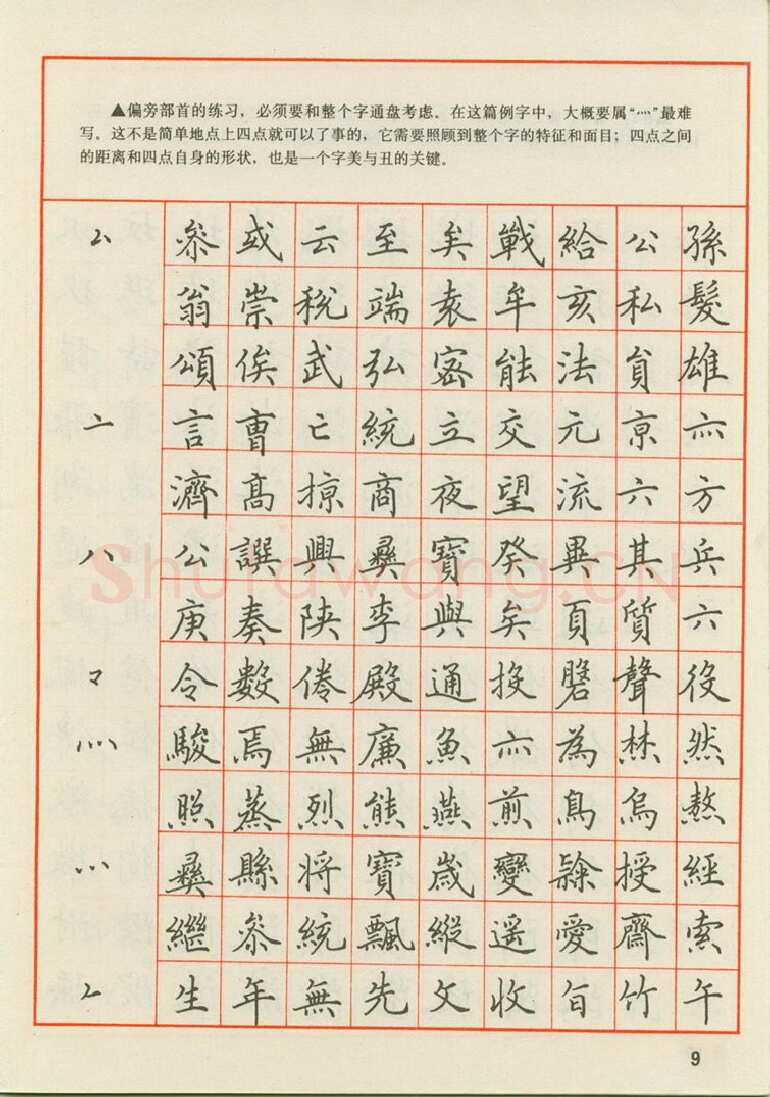 ▲偏旁部首的练习，必须要和整个字通盘考虑。在这篇例字中，大概要属“灬”最难
写。这不是简单地点上四点就可以了事的，它需要照顾到整个字的特征和面目；四点之间
的距离和四点自身的形状，也是一个字美与丑的关键。
厶 叅 或 云 至 矣 戰 給 公 孫
翁 崇 稅 端 袁 牟 亥 私 髮
頌 俟 武 弘 密 能 法 貟 雄
亠 言 曺 亡 統 立 交 元 京
濟 髙 掠 商 夜 望 流 六 方
八 公 譔 興 彞 寶 癸 畢 其 兵
庚 奏 陝 李 與 矣 頁 質 六
龴 令 數 倦 殿 通 投 聲 役
灬 駿 焉 無 廉 魚 亦 為 然
照 蒸 烈 熊 燕 煎 鳥 烏 熬
彞 縣 将 寶 歲 變 授 經
繼 叅 統 飄 縱 遥 愛 齋 索
𠂉 生 年 無 先 攵 收 旨 竹 午
Shufawang.CN
9